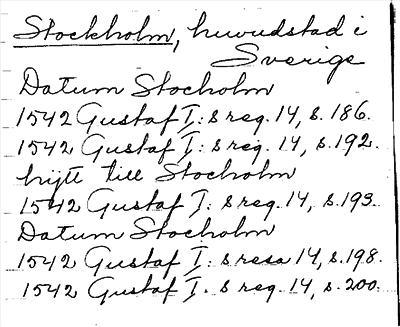 Stockholm, huvudstad i
Sverige
Datum Stocholm
1542 Gustaf I: s reg. 14, s. 186.
1542 Gustaf I: s reg. 14, s. 192.
till Stocholm
1542 Gustaf I: s reg. 14, s. 193.
Datum Stocholm
1542 Gustaf I: s 14, s. 198.
1542 Gustaf I. s reg. 14, s. 200.